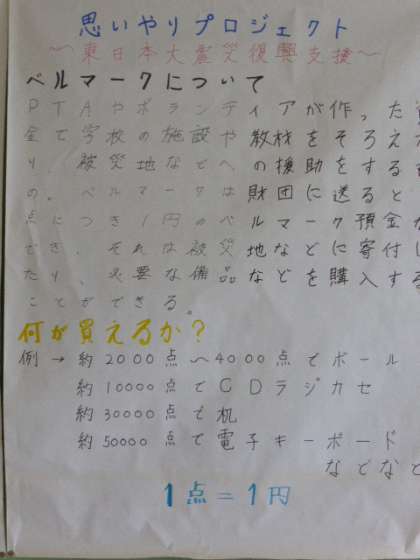 思いやりプロジェクト
〜東日本大震災復興支援〜
ベルマークについて
PTAやボランティアが作った資
金で学校の施設や教材をそろえた
り、被災地などへの援助をするも
の。ベルマークは財団に送ると1
点につき1円のベルマーク預金が
でき、それは被災地などに寄付し
たり、必要な備品などを購入する
ことができる。
何が買えるか？
例→約2000点〜4000点でボール
約10000点でCDラジカセ
約30000点で机
約50000点で電子キーボード
などなど
1点=1円